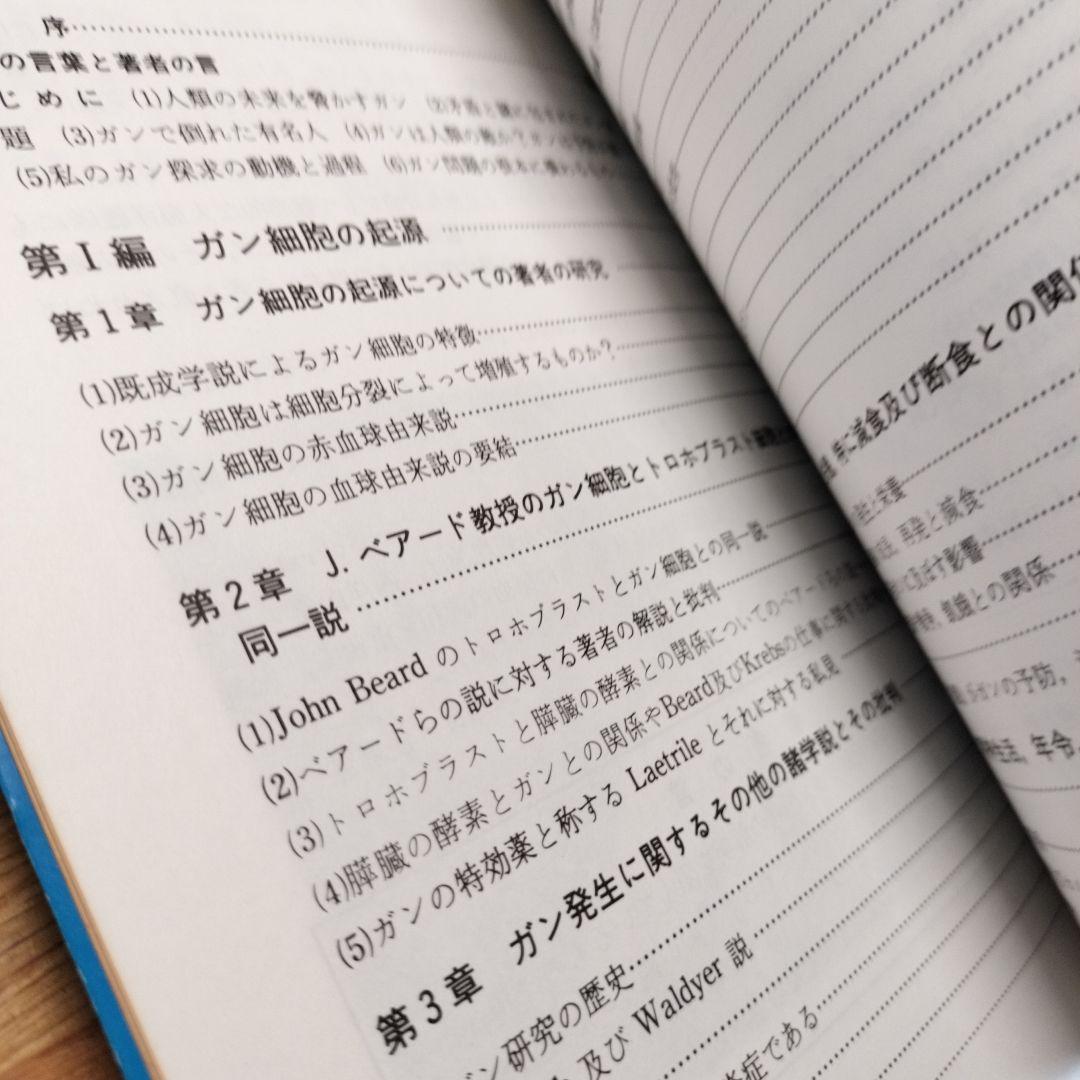 序
の言葉と著者の言
じめに (1)人類の未来を脅かすガン
題 (3)ガンで倒れた有名人 (4)ガンは人類の敵か?
(5)私のガン探求の動機と過程 (6)ガン問題の根本に
第I編 ガン細胞の起源
第1章 ガン細胞の起源についての著者の研究
(1)既成学説によるガン細胞の特徴
(2)ガン細胞は細胞分裂によって増殖するものか?
(3)ガン細胞の赤血球由来説
(4)ガン細胞の血球由来説の要結
第2章 J. ベアード教授のガン細胞とトロホブラスト
同一説
(1)John Beard のトロホブラストとガン細胞との同一説
(2)ベアードらの説に対する著者の解説と批判
(3)トロホブラストと膵臓の酵素との関係についてのベアード
(4)膵臓の酵素とガンとの関係やBeard及びKrebsの仕事に関する
(5)ガンの特効薬と称する Laetrile とそれに対する私見
第3章 ガン発生に関するその他の諸学説とその批判
ン研究の歴史
及び Waldyer 説
症である
特に減食及び断食との関係
と栄養
再発と減食
に及ぼす影響
との関係
ガンの予防,
生活, 年令,